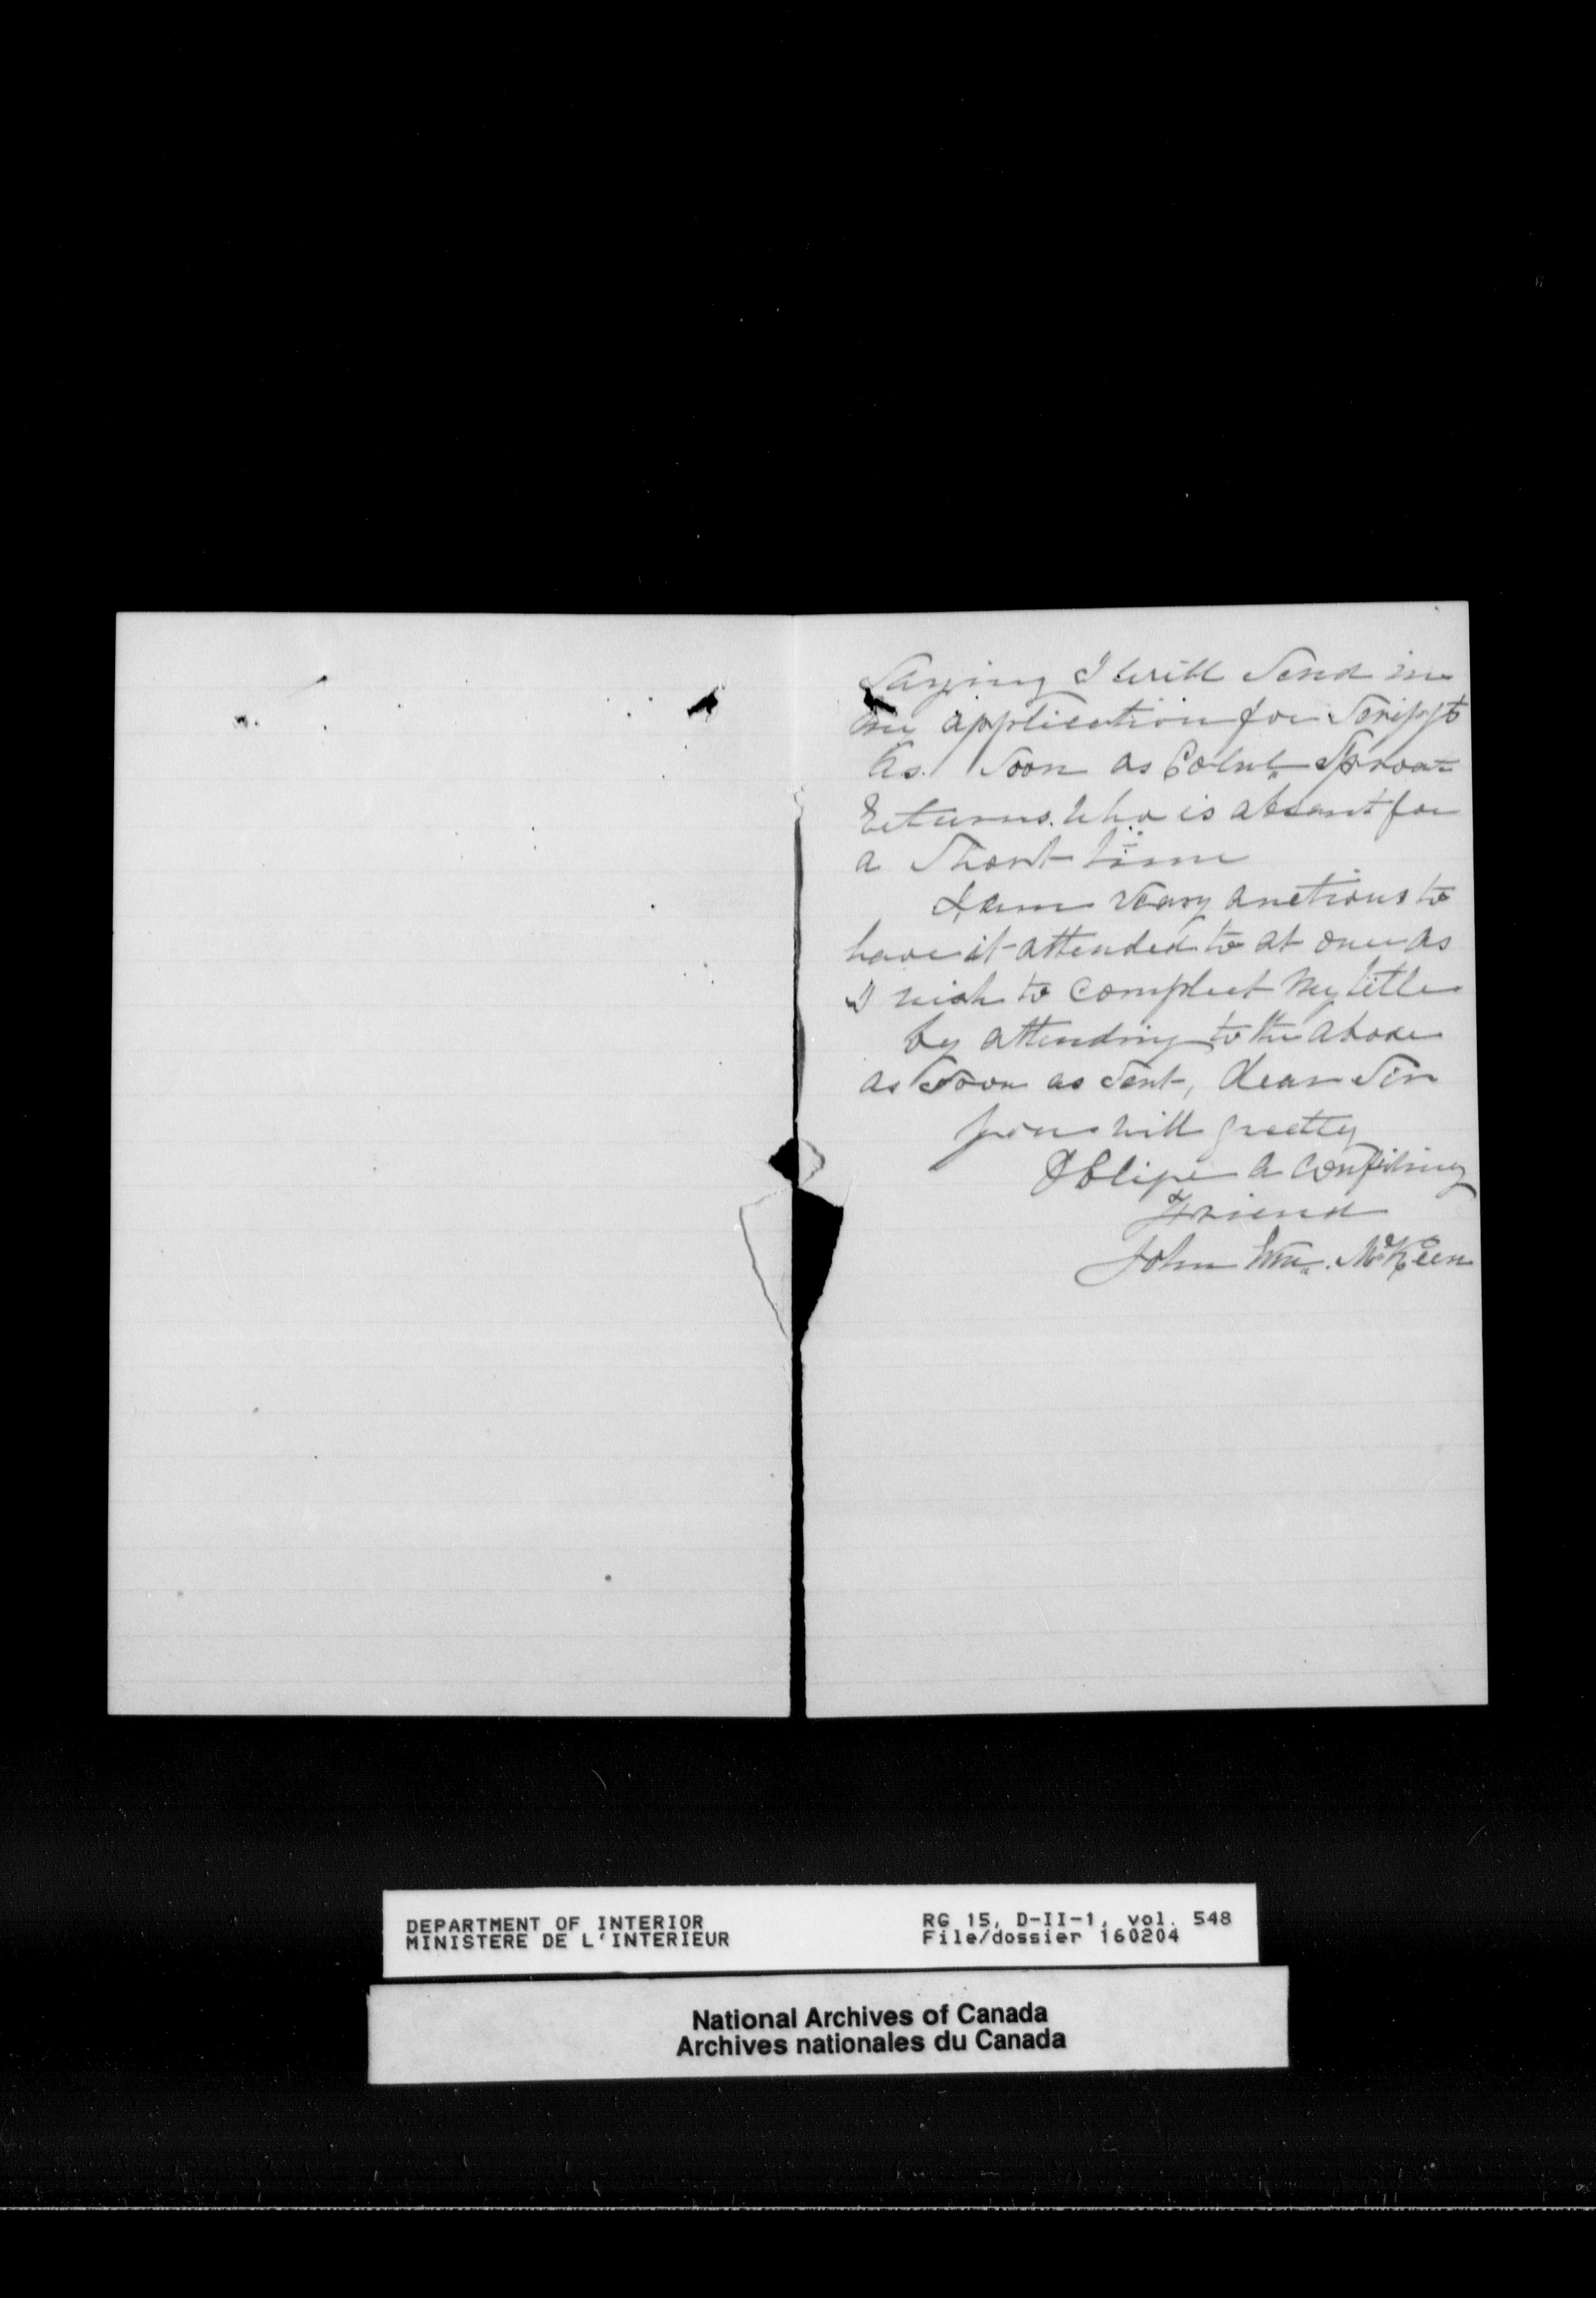 Saying I will Send in
my application for Script
As Soon as Colnl Sproat
Returns. Who is absent for
a Short time
I am veary anctious to
have it attended to at once as
I wish to compleet My title
by attending to the above
as Soon as Sent, dear Sir
you will greatly
Oblige a confiding
Friend
John Wm. McKeen
DEPARTMENT OF INTERIOR
MINISTERE DE L'INTERIEUR
RG 15, D-II-1, vol. 548
File/dossier 160204
National Archives of Canada
Archives nationales du Canada